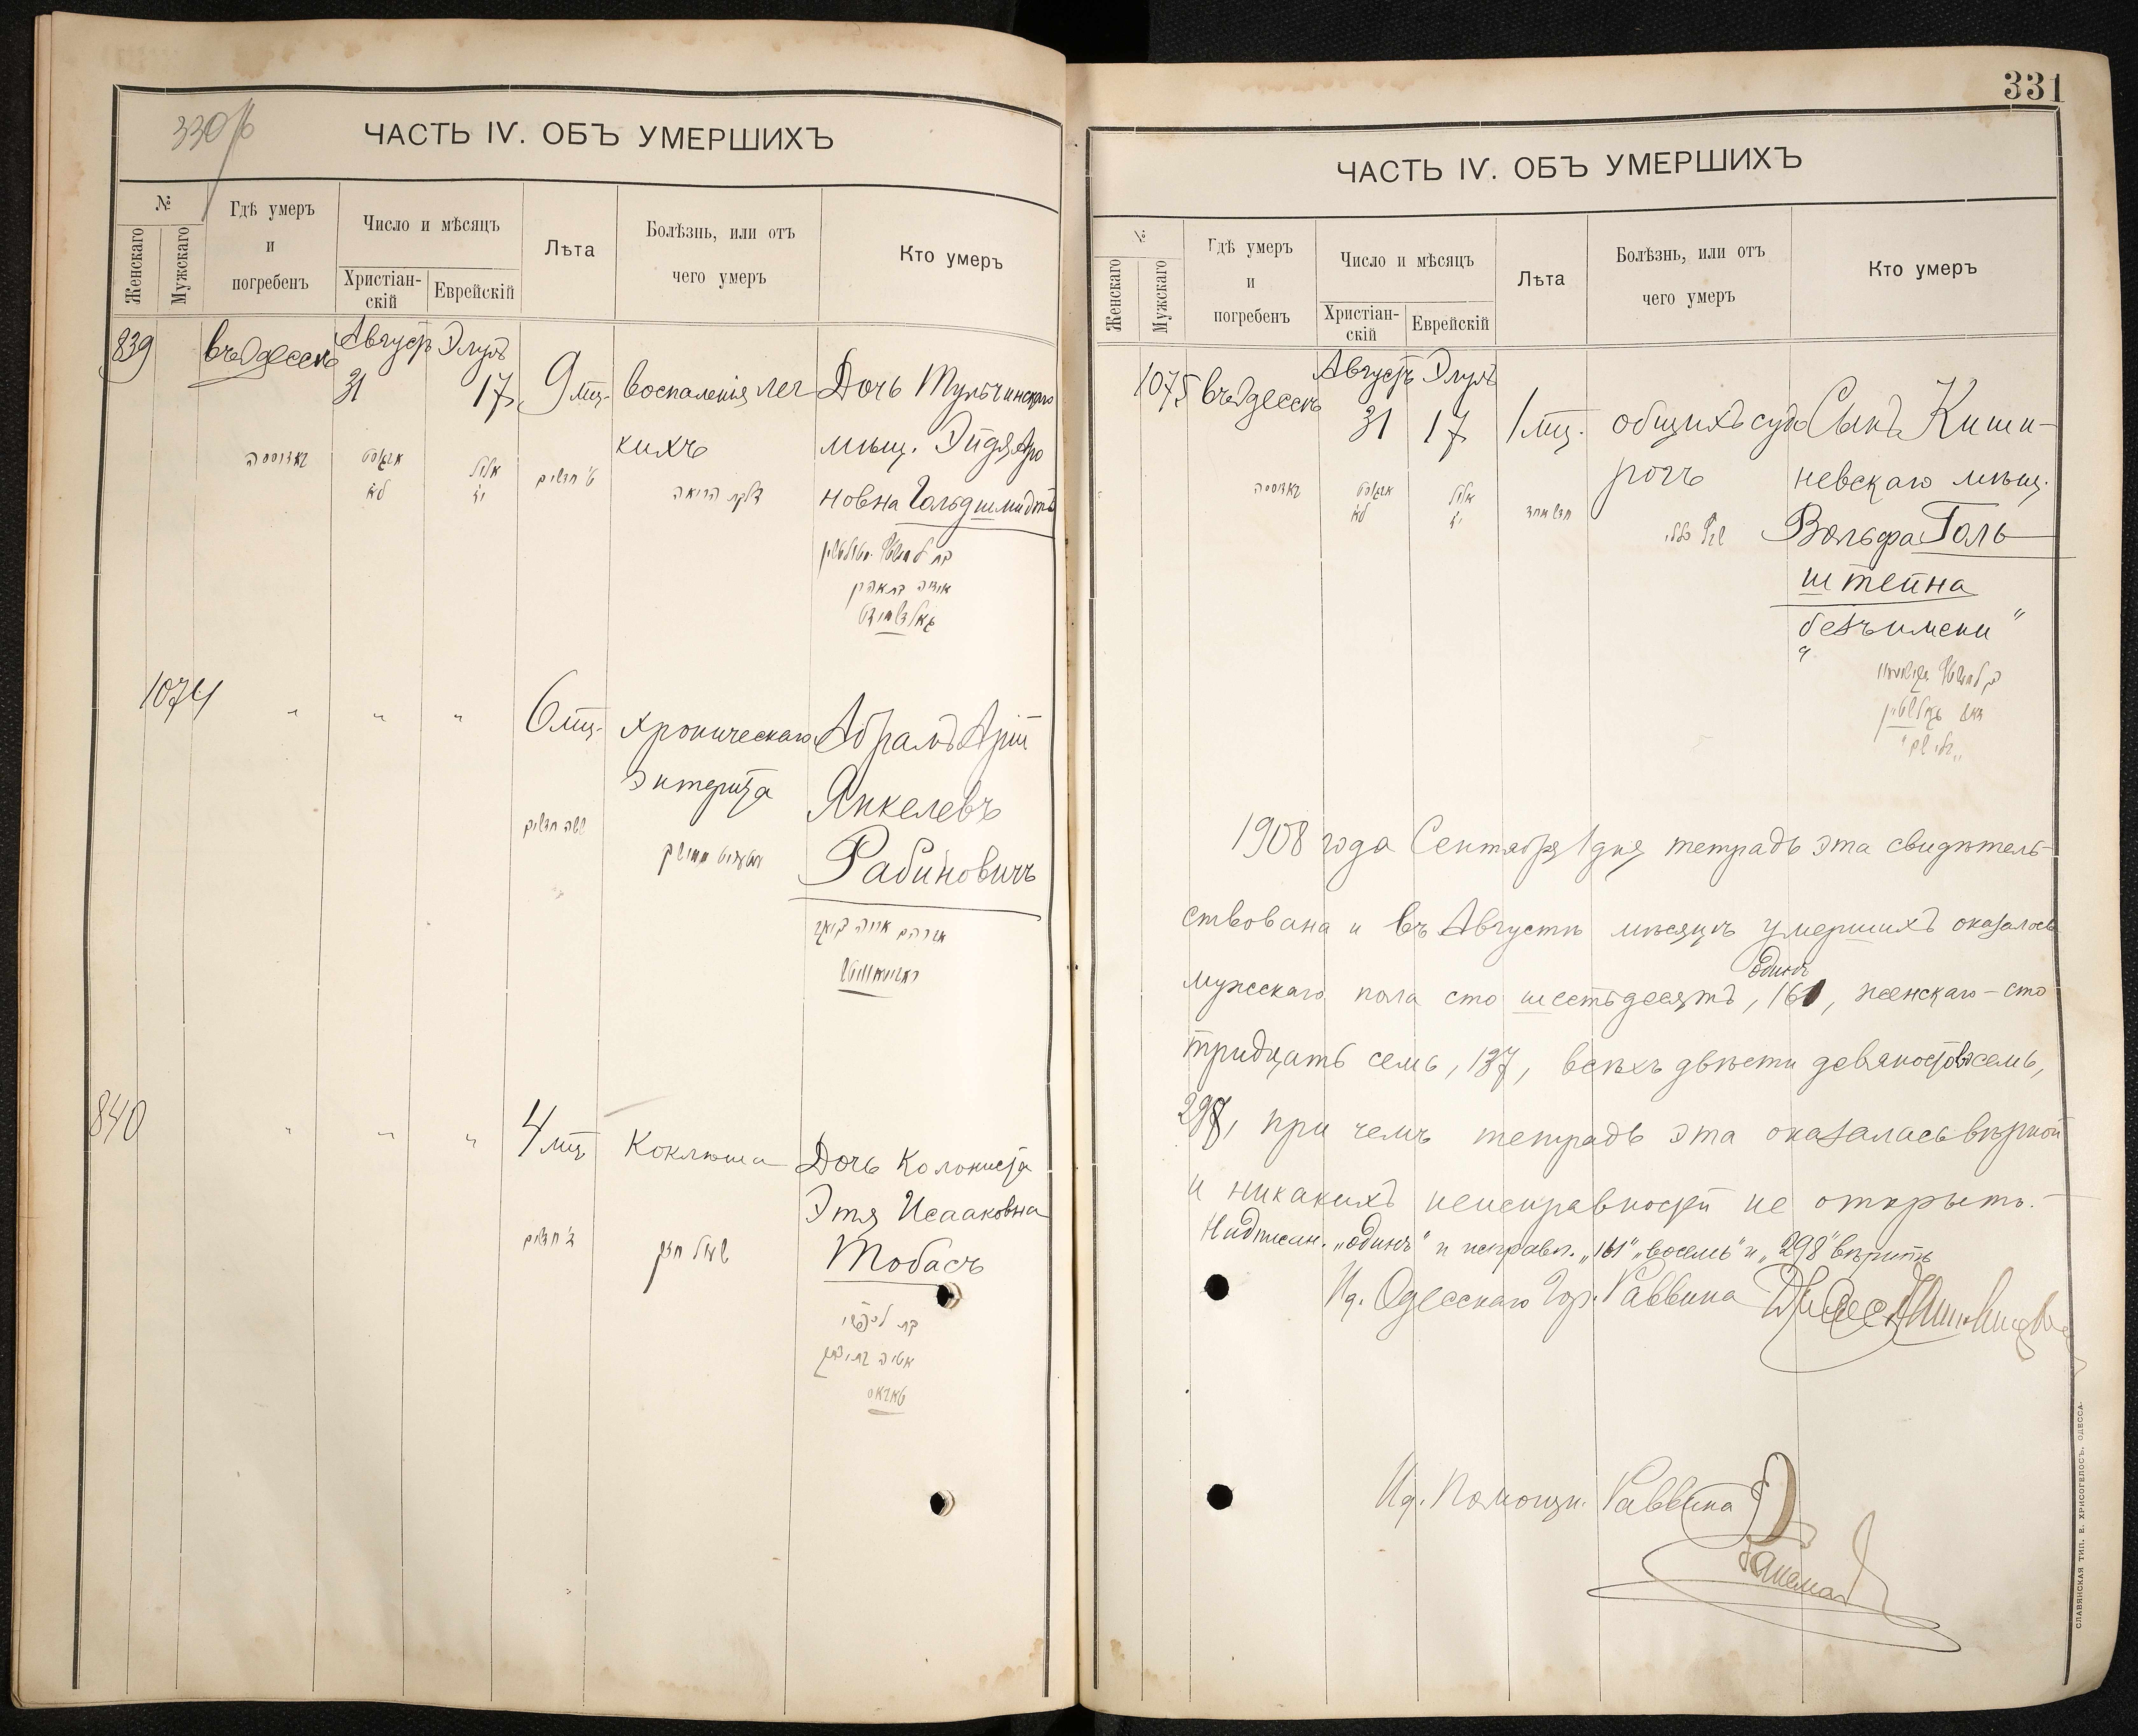 330/б
ЧАСТЬ IV. ОБЪ УМЕРШИХЪ
№
Женскаго
Мужскаго
Гдѣ умеръ
и
погребенъ
Число и мѣсяцъ
Христіан-
скій
Еврейскій
Лѣта
Болѣзнь, или отъ
чего умеръ
Кто умеръ
839 въ Одессѣ Августъ Элулъ
31 17 9 мц. воспаленія лег Дочь Тульчинскаго
кихъ мѣщ. Эйдя Аро
новна Гольдшмидтъ
באדוססה אווגוסט אלול ט' חדשים דלקת הריאה
לא יז
1074 " " " 6 мц. хроническаго Абрамъ Арій
энтерита Янкелевъ
Рабиновичъ
ששה חדשים
840 " " " 4 мц Коклюша Дочь Колониста
Этя Исааковна
Тобасъ
ד' חדשים
331
ЧАСТЬ IV. ОБЪ УМЕРШИХЪ
№
Женскаго
Мужскаго
Гдѣ умеръ
и
погребенъ
Число и мѣсяцъ
Христіан-
скій
Еврейскій
Лѣта
Болѣзнь, или отъ
чего умеръ
Кто умеръ
1075 въ Одессѣ Августъ Элулъ
31 17 1 мц. общихъ судо Сынъ Киши-
рогъ невскаго мѣщ.
Вольфа Голь
штейна
безъ имени"
באדוססה אווגוסט אלול חדש אחד
לא יז
1908 года Сентября 1 дня тетрадь эта свидѣтель-
ствована и въ Августѣ мѣсяцѣ умершихъ оказалось
одинъ
мужскаго пола сто шестьдесятъ, 161, женскаго - сто
тридцать семь, 137, всѣхъ двѣсти девяносто восемь,
298, при чемъ тетрадь эта оказалась вѣрной
и никакихъ неисправностей не открыто. -
Надписан. "одинъ" и исправл. "161" "восемь" и "298" вѣрить
Ид. Одесскаго Гор. Раввина
Ид. Помощн. Раввина
СЛАВЯНСКАЯ ТИП. Е. ХРИСОГЕЛОСЪ, ОДЕССА.